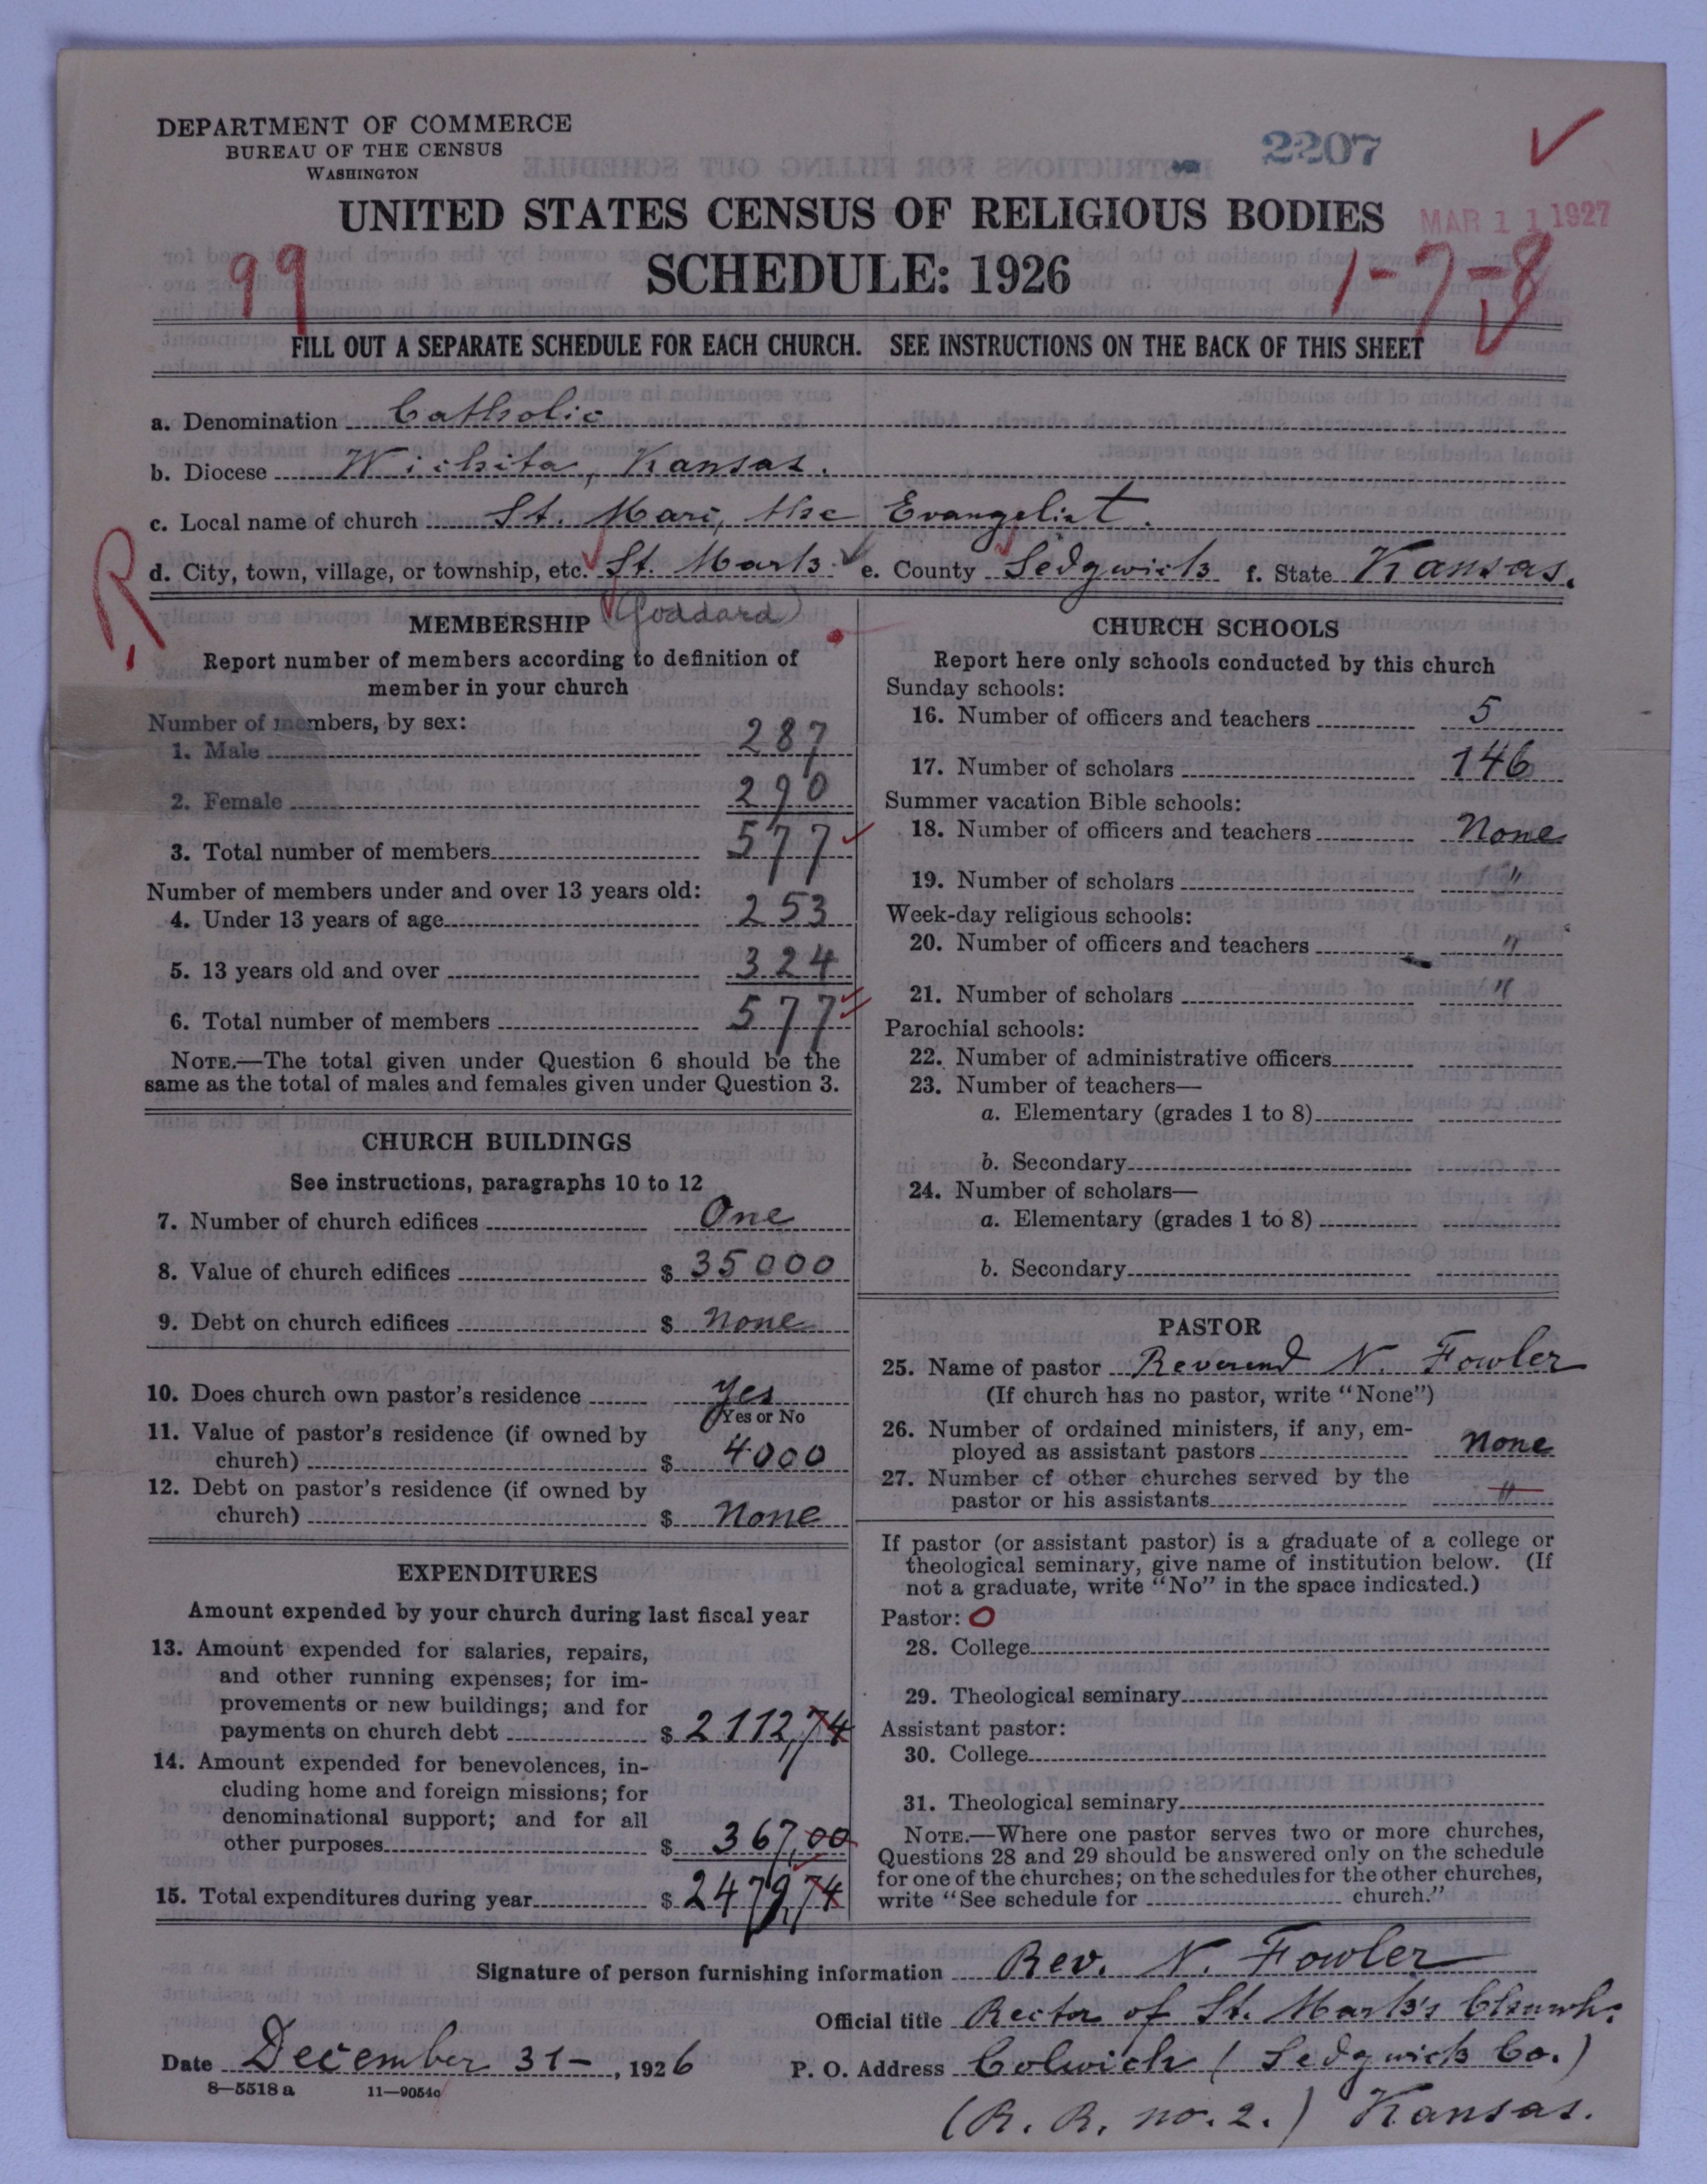 DEPARTMENT OF COMMERCE
BUREAU OF THE CENSUS
WASHINGTON
2207
UNITED STATES CENSUS OF RELIGIOUS BODIES
MAR 11 1927
99
SCHEDULE: 1926
1-7-8
FILL OUT A SEPARATE SCHEDULE FOR EACH CHURCH. SEE INSTRUCTIONS ON THE BACK OF THIS SHEET
a. Denomination Catholic
b. Diocese Wichita, Kansas.
c. Local name of church St. Mark, the Evangelist.
R
d. City, town, village, or township, etc. St. Mark. e. County Sedgwick f. State Kansas.
(Goddard)
MEMBERSHIP
Report number of members according to definition of
member in your church
Number of members, by sex:
1. Male 287
2. Female 290
3. Total number of members 577
Number of members under and over 13 years old:
4. Under 13 years of age 253
5. 13 years old and over 324
6. Total number of members 577
NOTE.—The total given under Question 6 should be the
same as the total of males and females given under Question 3.
CHURCH BUILDINGS
See instructions, paragraphs 10 to 12
7. Number of church edifices One
8. Value of church edifices $ 35000
9. Debt on church edifices $ None
10. Does church own pastor's residence Yes
Yes or No
11. Value of pastor's residence (if owned by
church) $ 4000
12. Debt on pastor's residence (if owned by
church) $ None
EXPENDITURES
Amount expended by your church during last fiscal year
13. Amount expended for salaries, repairs,
and other running expenses; for im-
provements or new buildings; and for
payments on church debt $ 2112,74
14. Amount expended for benevolences, in-
cluding home and foreign missions; for
denominational support; and for all
other purposes $ 367,00
15. Total expenditures during year $ 2479,74
CHURCH SCHOOLS
Report here only schools conducted by this church
Sunday schools:
16. Number of officers and teachers 5
17. Number of scholars 146
Summer vacation Bible schools:
18. Number of officers and teachers None
19. Number of scholars "
Week-day religious schools:
20. Number of officers and teachers "
21. Number of scholars "
Parochial schools:
22. Number of administrative officers
23. Number of teachers—
a. Elementary (grades 1 to 8)
b. Secondary
24. Number of scholars—
a. Elementary (grades 1 to 8)
b. Secondary
PASTOR
25. Name of pastor Reverend N. Fowler
(If church has no pastor, write "None")
26. Number of ordained ministers, if any, em-
ployed as assistant pastors None
27. Number of other churches served by the
pastor or his assistants "
If pastor (or assistant pastor) is a graduate of a college or
theological seminary, give name of institution below. (If
not a graduate, write "No" in the space indicated.)
Pastor: O
28. College
29. Theological seminary
Assistant pastor:
30. College
31. Theological seminary
NOTE.—Where one pastor serves two or more churches,
Questions 28 and 29 should be answered only on the schedule
for one of the churches; on the schedules for the other churches,
write "See schedule for church."
Signature of person furnishing information Rev. N. Fowler
Official title Rector of St. Mark's Church.
Date December 31-, 1926 P. O. Address Colwich (Sedgwick Co.)
8—5518 a 11—9054
(R. R. no. 2.) Kansas.